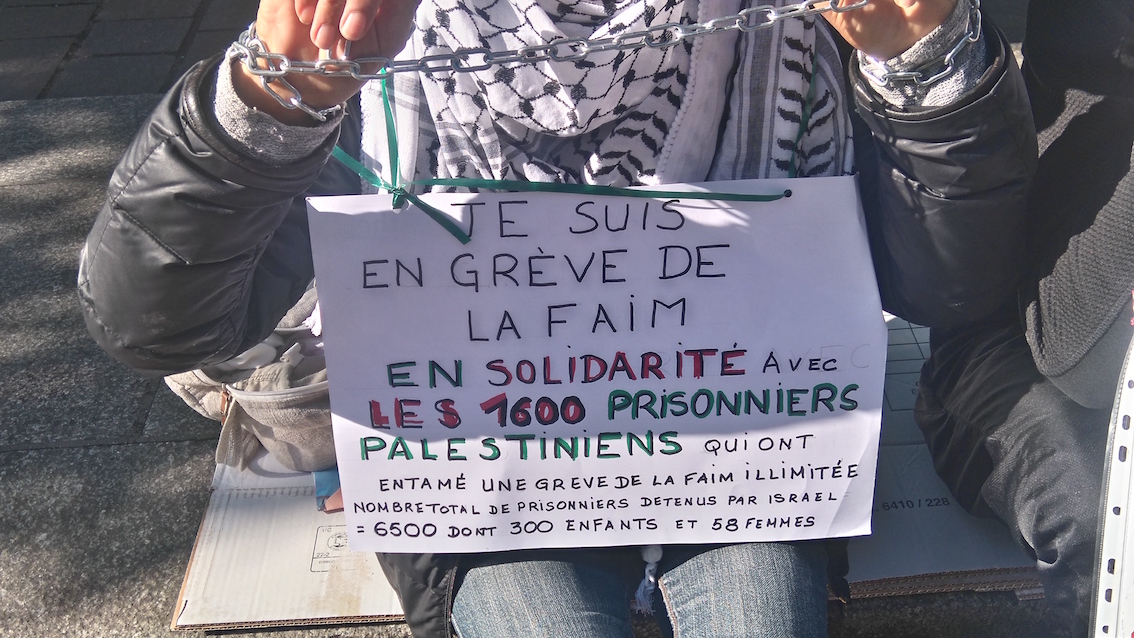 JE SUIS
EN GRÈVE DE
LA FAIM
EN SOLIDARITÉ AVEC
LES 1600 PRISONNIERS
PALESTINIENS QUI ONT
ENTAMÉ UNE GREVE DE LA FAIM ILLIMITÉE
NOMBRE TOTAL DE PRISONNIERS DETENUS PAR ISRAEL
= 6500 DONT 300 ENFANTS ET 58 FEMMES
6410 / 228